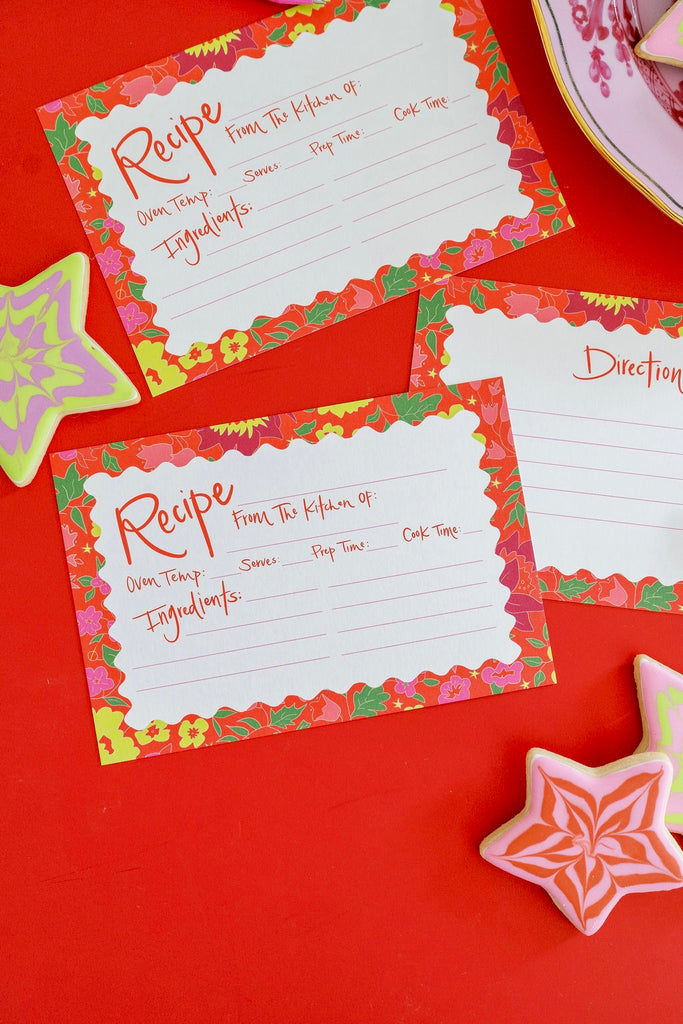 Recipe
From The Kitchen Of:
Oven Temp: Serves: Prep Time: Cook Time:
Ingredients:
Direction
Recipe
From The Kitchen Of:
Oven Temp: Serves: Prep Time: Cook Time:
Ingredients: